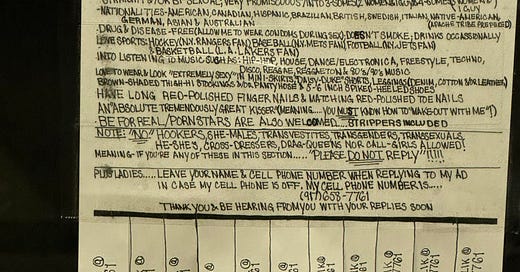 STRAIGHT &/OR BI-SEXUAL, VERY PROMISCUOUS INTO 3-SOMES (2 WOMEN &
NATIONALITIES-AMERICAN, CANADIAN, HISPANIC, BRAZILIAN, BRITISH, SWEDISH, ITALIAN, NATIVE-AMERICAN,
GERMAN, ASIAN & AUSTRALIAN (APACHE TRIBE PREFERRED)
DRUG & DISEASE-FREE (ALLOW ME TO WEAR CONDOMS DURING SEX), DOESN'T SMOKE, DRINKS OCCASIONALLY
LOVE SPORTS: HOCKEY (N.Y. RANGERS FAN), BASEBALL (N.Y. METS FAN), FOOTBALL (N.Y. JETS FAN)
& BASKETBALL (L.A. LAKERS FAN)
INTO LISTENING TO MUSIC SUCH AS: HIP-HOP, HOUSE, DANCE/ELECTRONICA, FREESTYLE, TECHNO,
DISCO, REGGAE, REGGAETON & 80's/90's MUSIC
LOVE TO WEAR & LOOK "EXTREMELY SEXY" IN MINI-SKIRTS, "DAISY-DUKE" SHORTS, LEGGINGS (DENIM, COTTON &/OR LEATHER)
BROWN-SHADED THIGH-HI STOCKINGS &/OR PANTY HOSE & 5-6 INCH SPIKED-HEELED SHOES
HAVE LONG RED-POLISHED FINGER NAILS & MATCHING RED-POLISHED TOE NAILS
AN "ABSOLUTE TREMENDOUSLY GREAT KISSER" (MEANING.... YOU MUST KNOW HOW TO "MAKE-OUT WITH ME"!)
BE FOR REAL/PORNSTARS ARE ALSO WELCOMED.... STRIPPERS INCLUDED
NOTE: "NO" HOOKERS, SHE-MALES, TRANSVESTITES, TRANSGENDERS, TRANSSEXUALS,
HE-SHE'S, CROSS-DRESSERS, DRAG-QUEENS NOR CALL-GIRLS ALLOWED!
MEANING-IF YOU'RE ANY OF THESE IN THIS SECTION..... "PLEASE DO NOT REPLY"!!!!!
PLUS LADIES..... LEAVE YOUR NAME & CELL PHONE NUMBER WHEN REPLYING TO MY AD
IN CASE MY CELL PHONE IS OFF. MY CELL PHONE NUMBER IS.....
(917) 658-7761
THANK YOU & BE HEARING FROM YOU WITH YOUR REPLIES SOON